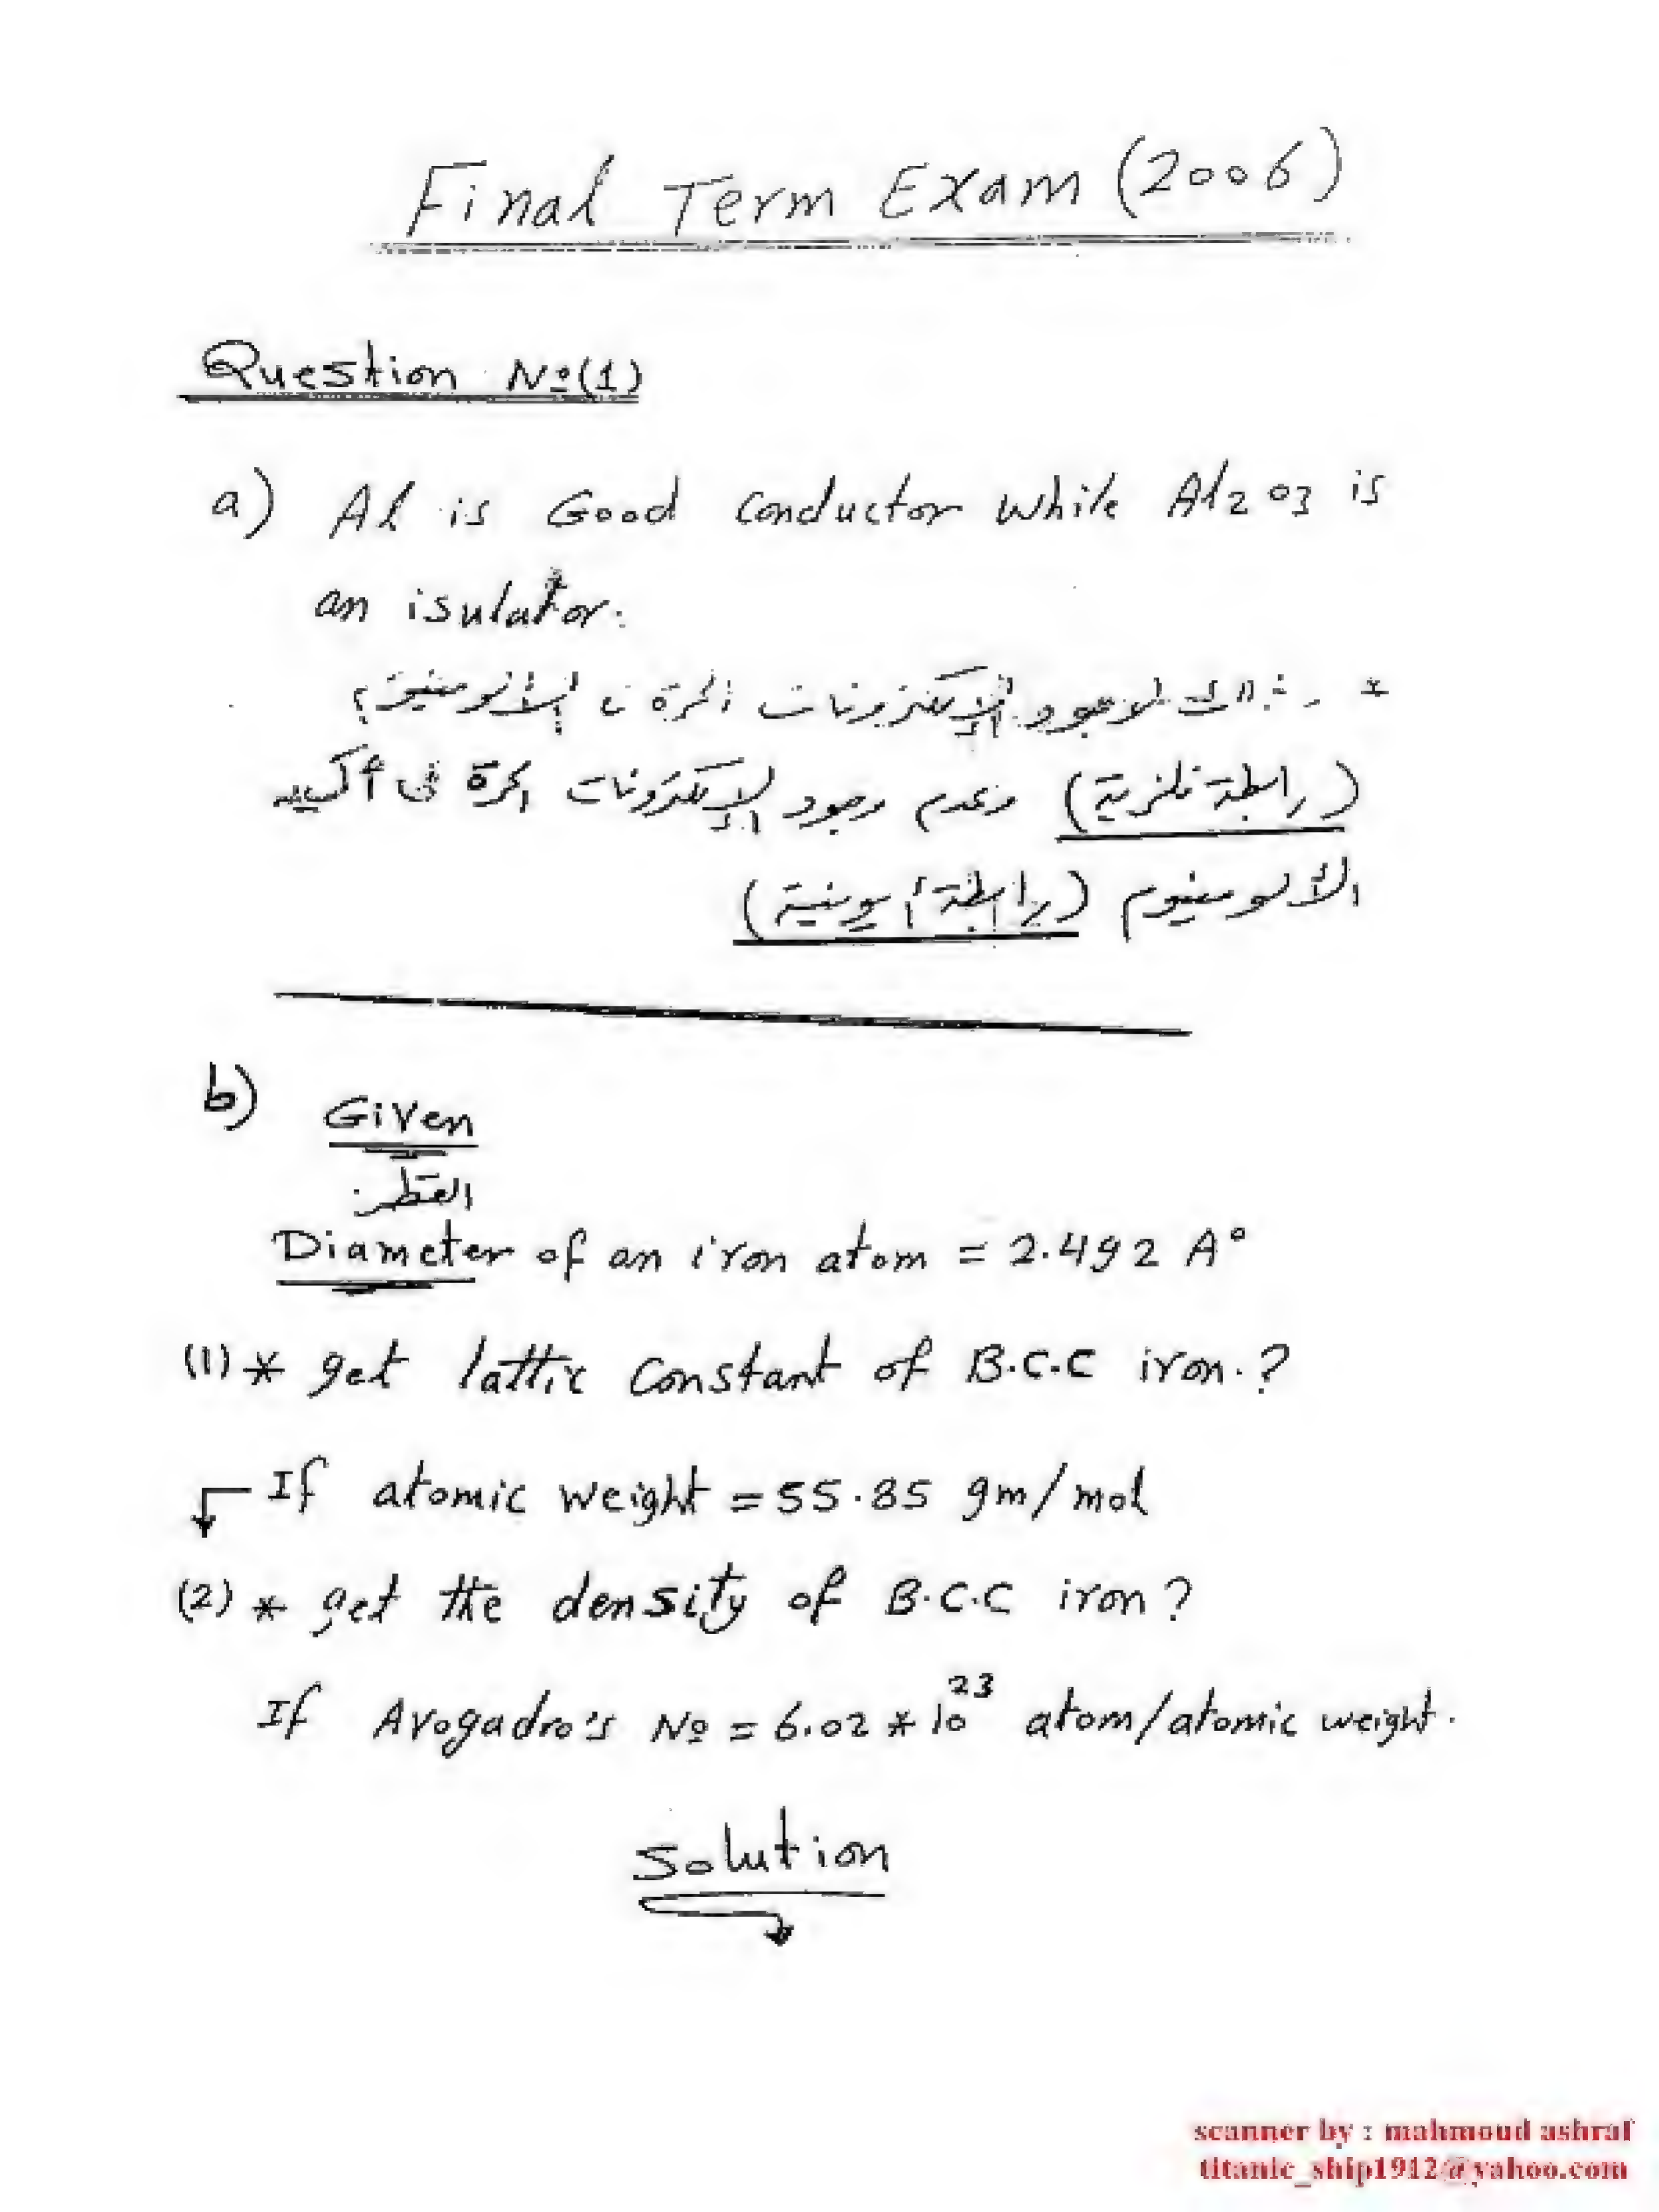 Final Term Exam (2006)
Question №(1)
a) Al is Good conductor while Al2O3 is
an isulator.
* وذلك لوجود الإلكترونات الحرة في الألومنيوم
(رابطة فلزية) وعدم وجود الإلكترونات الحرة في أكسيد
الألومنيوم (رابطة أيونية)
b) Given
القطر
Diameter of an iron atom = 2.492 A°
(1) * get lattic constant of B.C.C iron.?
If atomic weight = 55.85 gm/mol
(2) * get the density of B.C.C iron?
If Avogadro's № = 6.02 * 10^23 atom/atomic weight.
Solution
scanner by : mahmoud ashraf
titanic_ship1912@yahoo.com